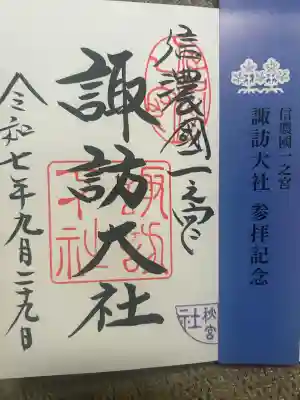 信濃國一之宮
諏訪大社 参拝記念
信濃國一之宮
諏訪大社
諏訪大社
秋宮
社
令和七年九月二十九日